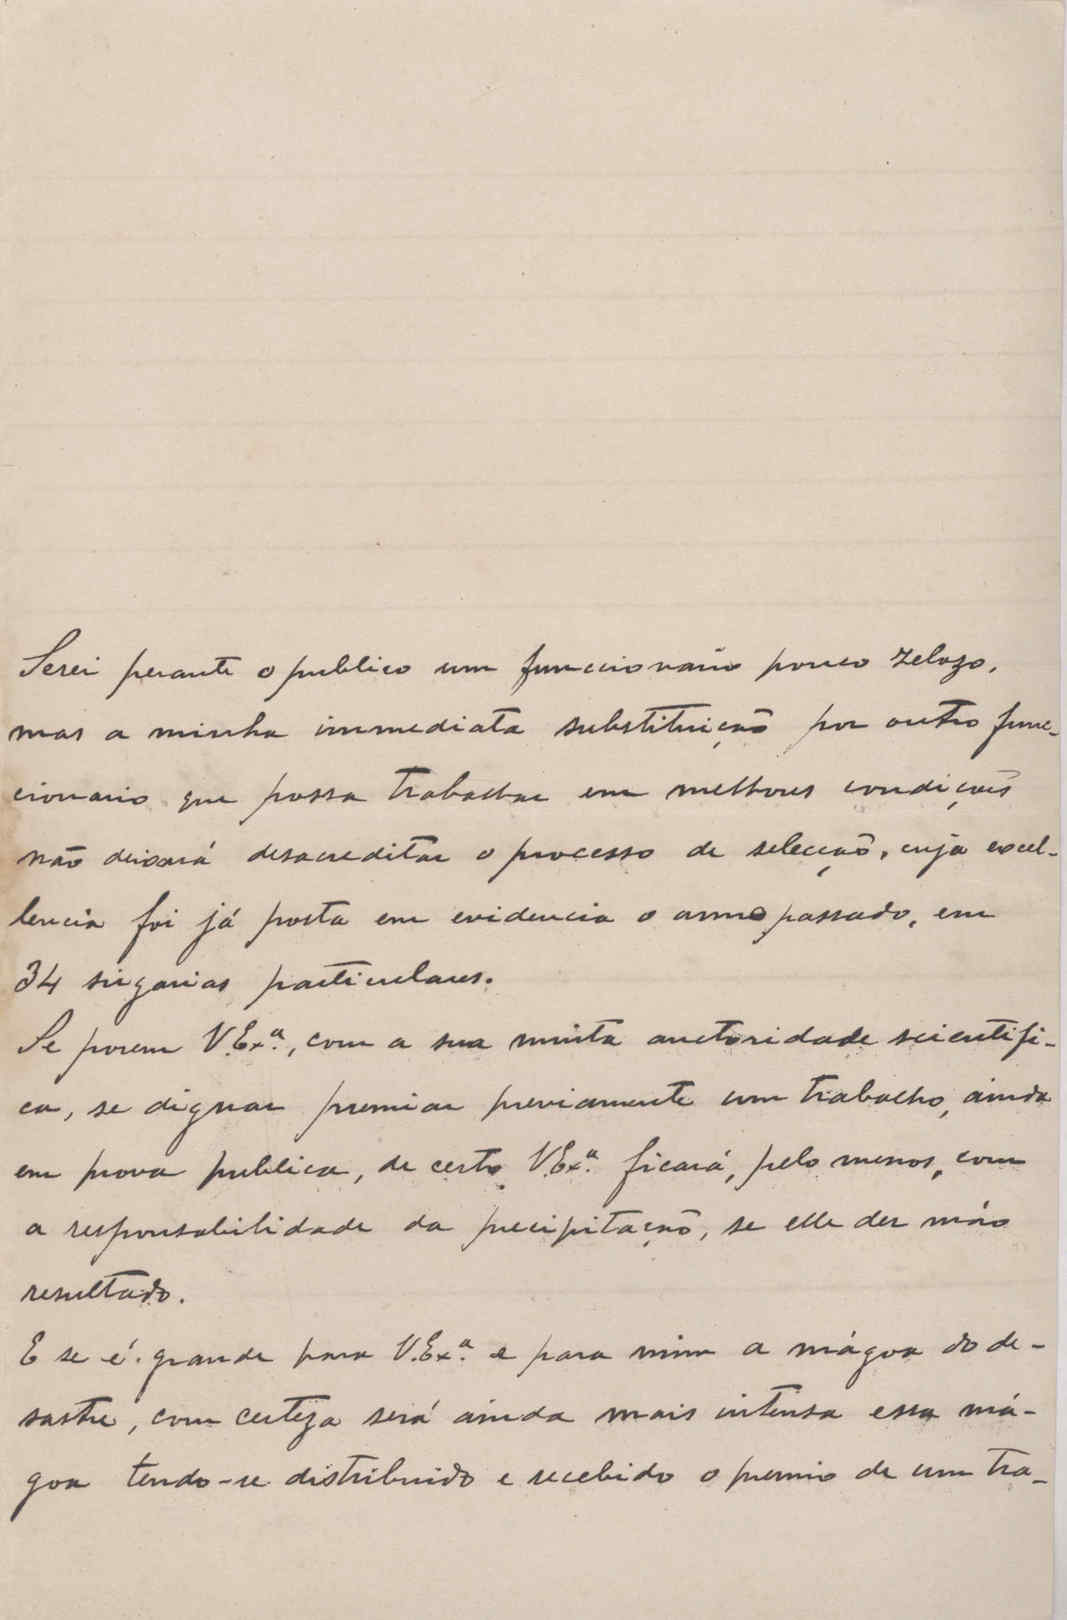 Serei perante o publico um funccionario pouco zelozo,
mas a minha immediata substituição por outro func-
cionario que possa trabalhar em melhores condições
não deixará desacreditar o processo de selecção, cuja excel-
lencia foi já posta em evidencia o anno passado, em
34 sirgarias particulares.
Se porem V. Exª., com a sua muita auctoridade scientifi-
ca, se dignar premiar previamente um trabalho, ainda
em prova publica, de certo V. Exª. ficará, pelo menos, com
a responsabilidade da precipitação, se elle der máo
resultado.
E se é grande para V. Exª. e para mim a mágoa do de-
sastre, com certeza será ainda mais intensa essa má-
goa tendo-se distribuido e recebido o premio de um tra-